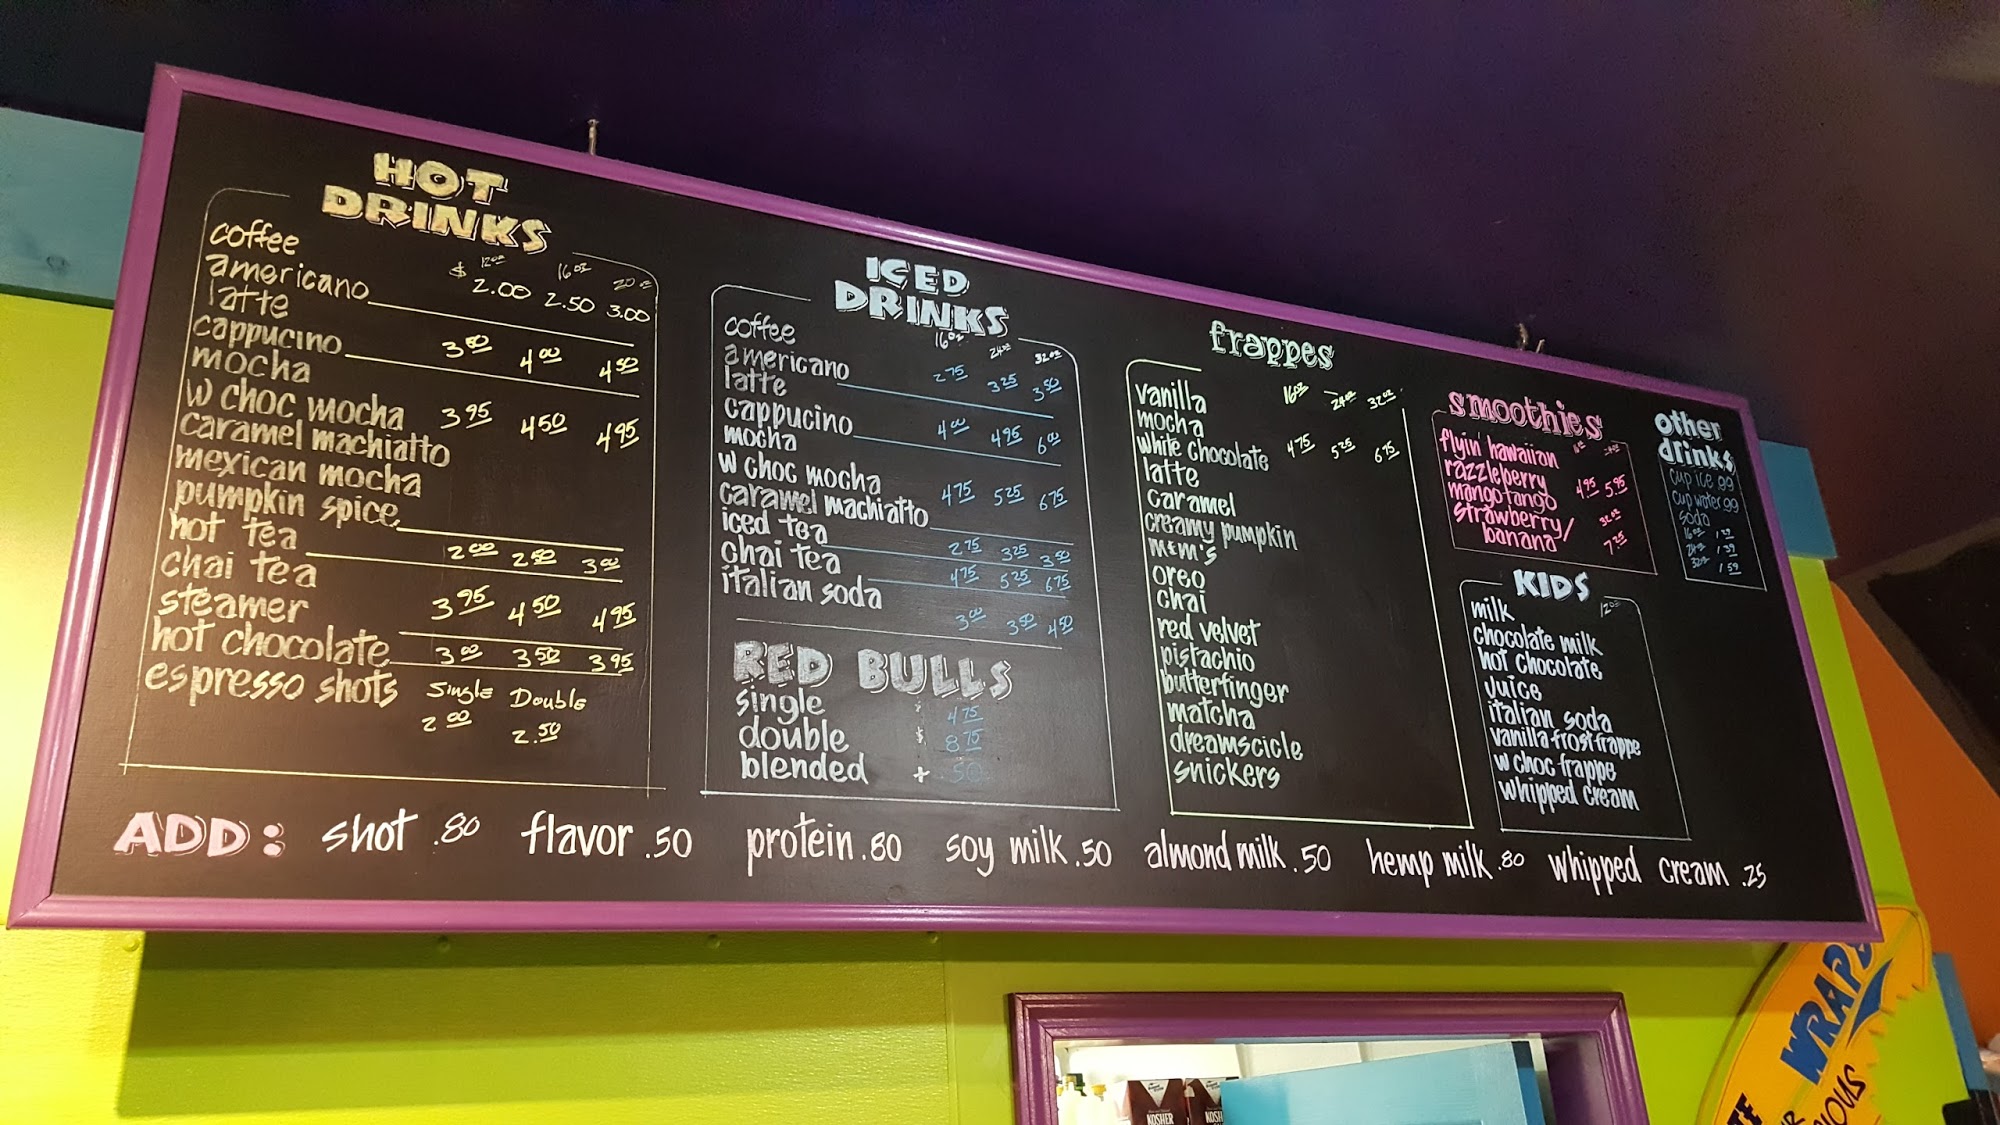 HOT
DRINKS
12oz 16oz 20oz
coffee $ 2.00 2.50 3.00
americano
latte
cappucino 3.50 4.00 4.50
mocha
w choc mocha 3.95 4.50 4.95
caramel machiatto
mexican mocha
pumpkin spice
hot tea 2.00 2.50 3.00
chai tea
steamer 3.95 4.50 4.95
hot chocolate 3.00 3.50 3.95
espresso shots Single Double
2.00 2.50
ICED
DRINKS
16oz 24oz 32oz
coffee
americano 2.75 3.25 3.50
latte
cappucino 4.00 4.95 6.00
mocha
w choc mocha
caramel machiatto 4.75 5.25 6.75
iced tea 2.75 3.25 3.50
chai tea 4.75 5.25 6.75
italian soda 3.00 3.50 4.50
RED BULLS
single $ 4.75
double $ 8.75
blended + 50
frappes
16oz 24oz 32oz
vanilla
mocha
white chocolate 4.75 5.25 6.75
latte
caramel
creamy pumpkin
m&m's
oreo
chai
red velvet
pistachio
butterfinger
matcha
dreamscicle
snickers
smoothies
flyin' hawaiian
razzleberry
mangotango 4.95 5.95
strawberry/ 32oz
banana 7.25
other
drinks
cup ice 99
cup water 99
soda
16oz
24oz 1.39
32oz 1.59
KIDS
milk 12oz
chocolate milk
hot chocolate
juice
italian soda
vanilla frost frappe
w choc frappe
whipped cream
ADD: shot .80 flavor .50 protein .80 soy milk .50 almond milk .50 hemp milk .80 whipped cream .25
WRAPS
KOSHER